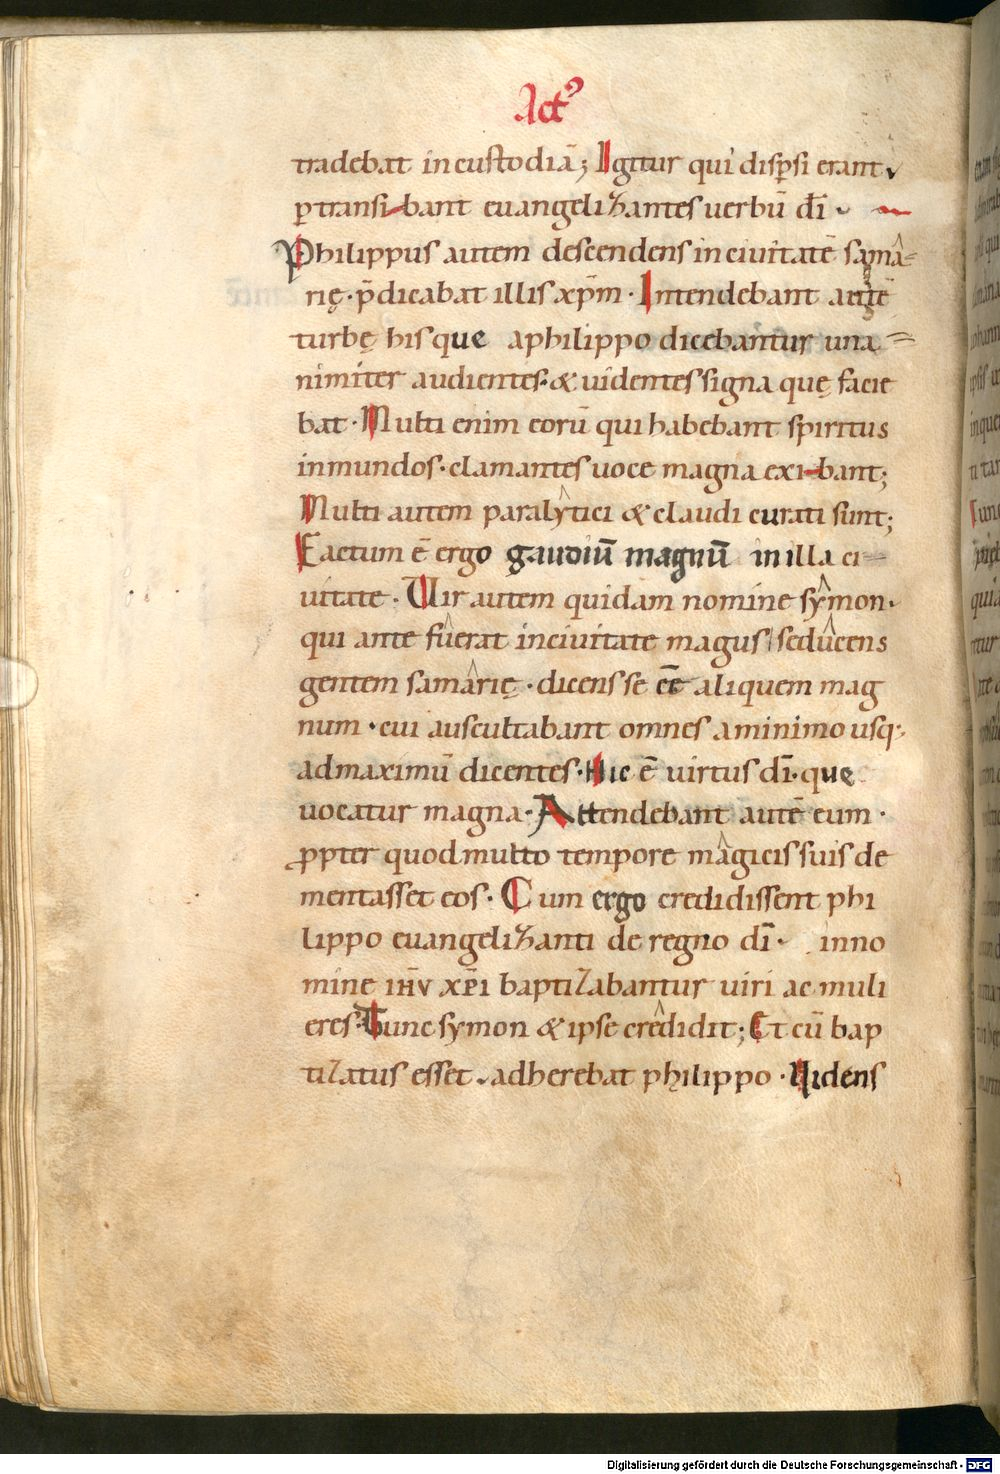 Act᾽
tradebat in custodiā; Igitur qui disꝑsi erant
ꝑtransibant euangelizantes uerbū dī
Philippus autem descendens in ciuitatē sama
rię · p̄dicabat illis xp̄m · Intendebant autē
turbę his que a philippo dicebantur una
nimiter audientes · & uidentes signa quę facie
bat · Multi enim eorū qui habebant spiritus
inmundos · clamantes uoce magna exibant;
Multi autem paralytici & claudi curati sunt;
Factum ē ergo gaudiū magnū in illa ci
uitate · Uir autem quidam nomine symon ·
qui ante fuerat in ciuitate magus seducens
gentem samarię · dicens se eē aliquem mag
num · cui auscultabant omnes a minimo usq;
ad maximū dicentes · Hic ē uirtus dī · que
uocatur magna · Attendebant autē eum ·
ꝓpter quod multo tempore magicis suis de
mentasset eos · Cum ergo credidissent phi
lippo euangelizanti de regno dī · in no
mine ihū xp̄i baptizabantur uiri ac muli
eres · Tunc symon & ipse credidit; Et cū bap
tizatus esset adherebat philippo · Uidens
Digitalisierung gefördert durch die Deutsche Forschungsgemeinschaft - DFG